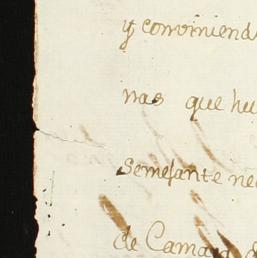 y conviniend
nas que hu
Semejante ne
de Camara d